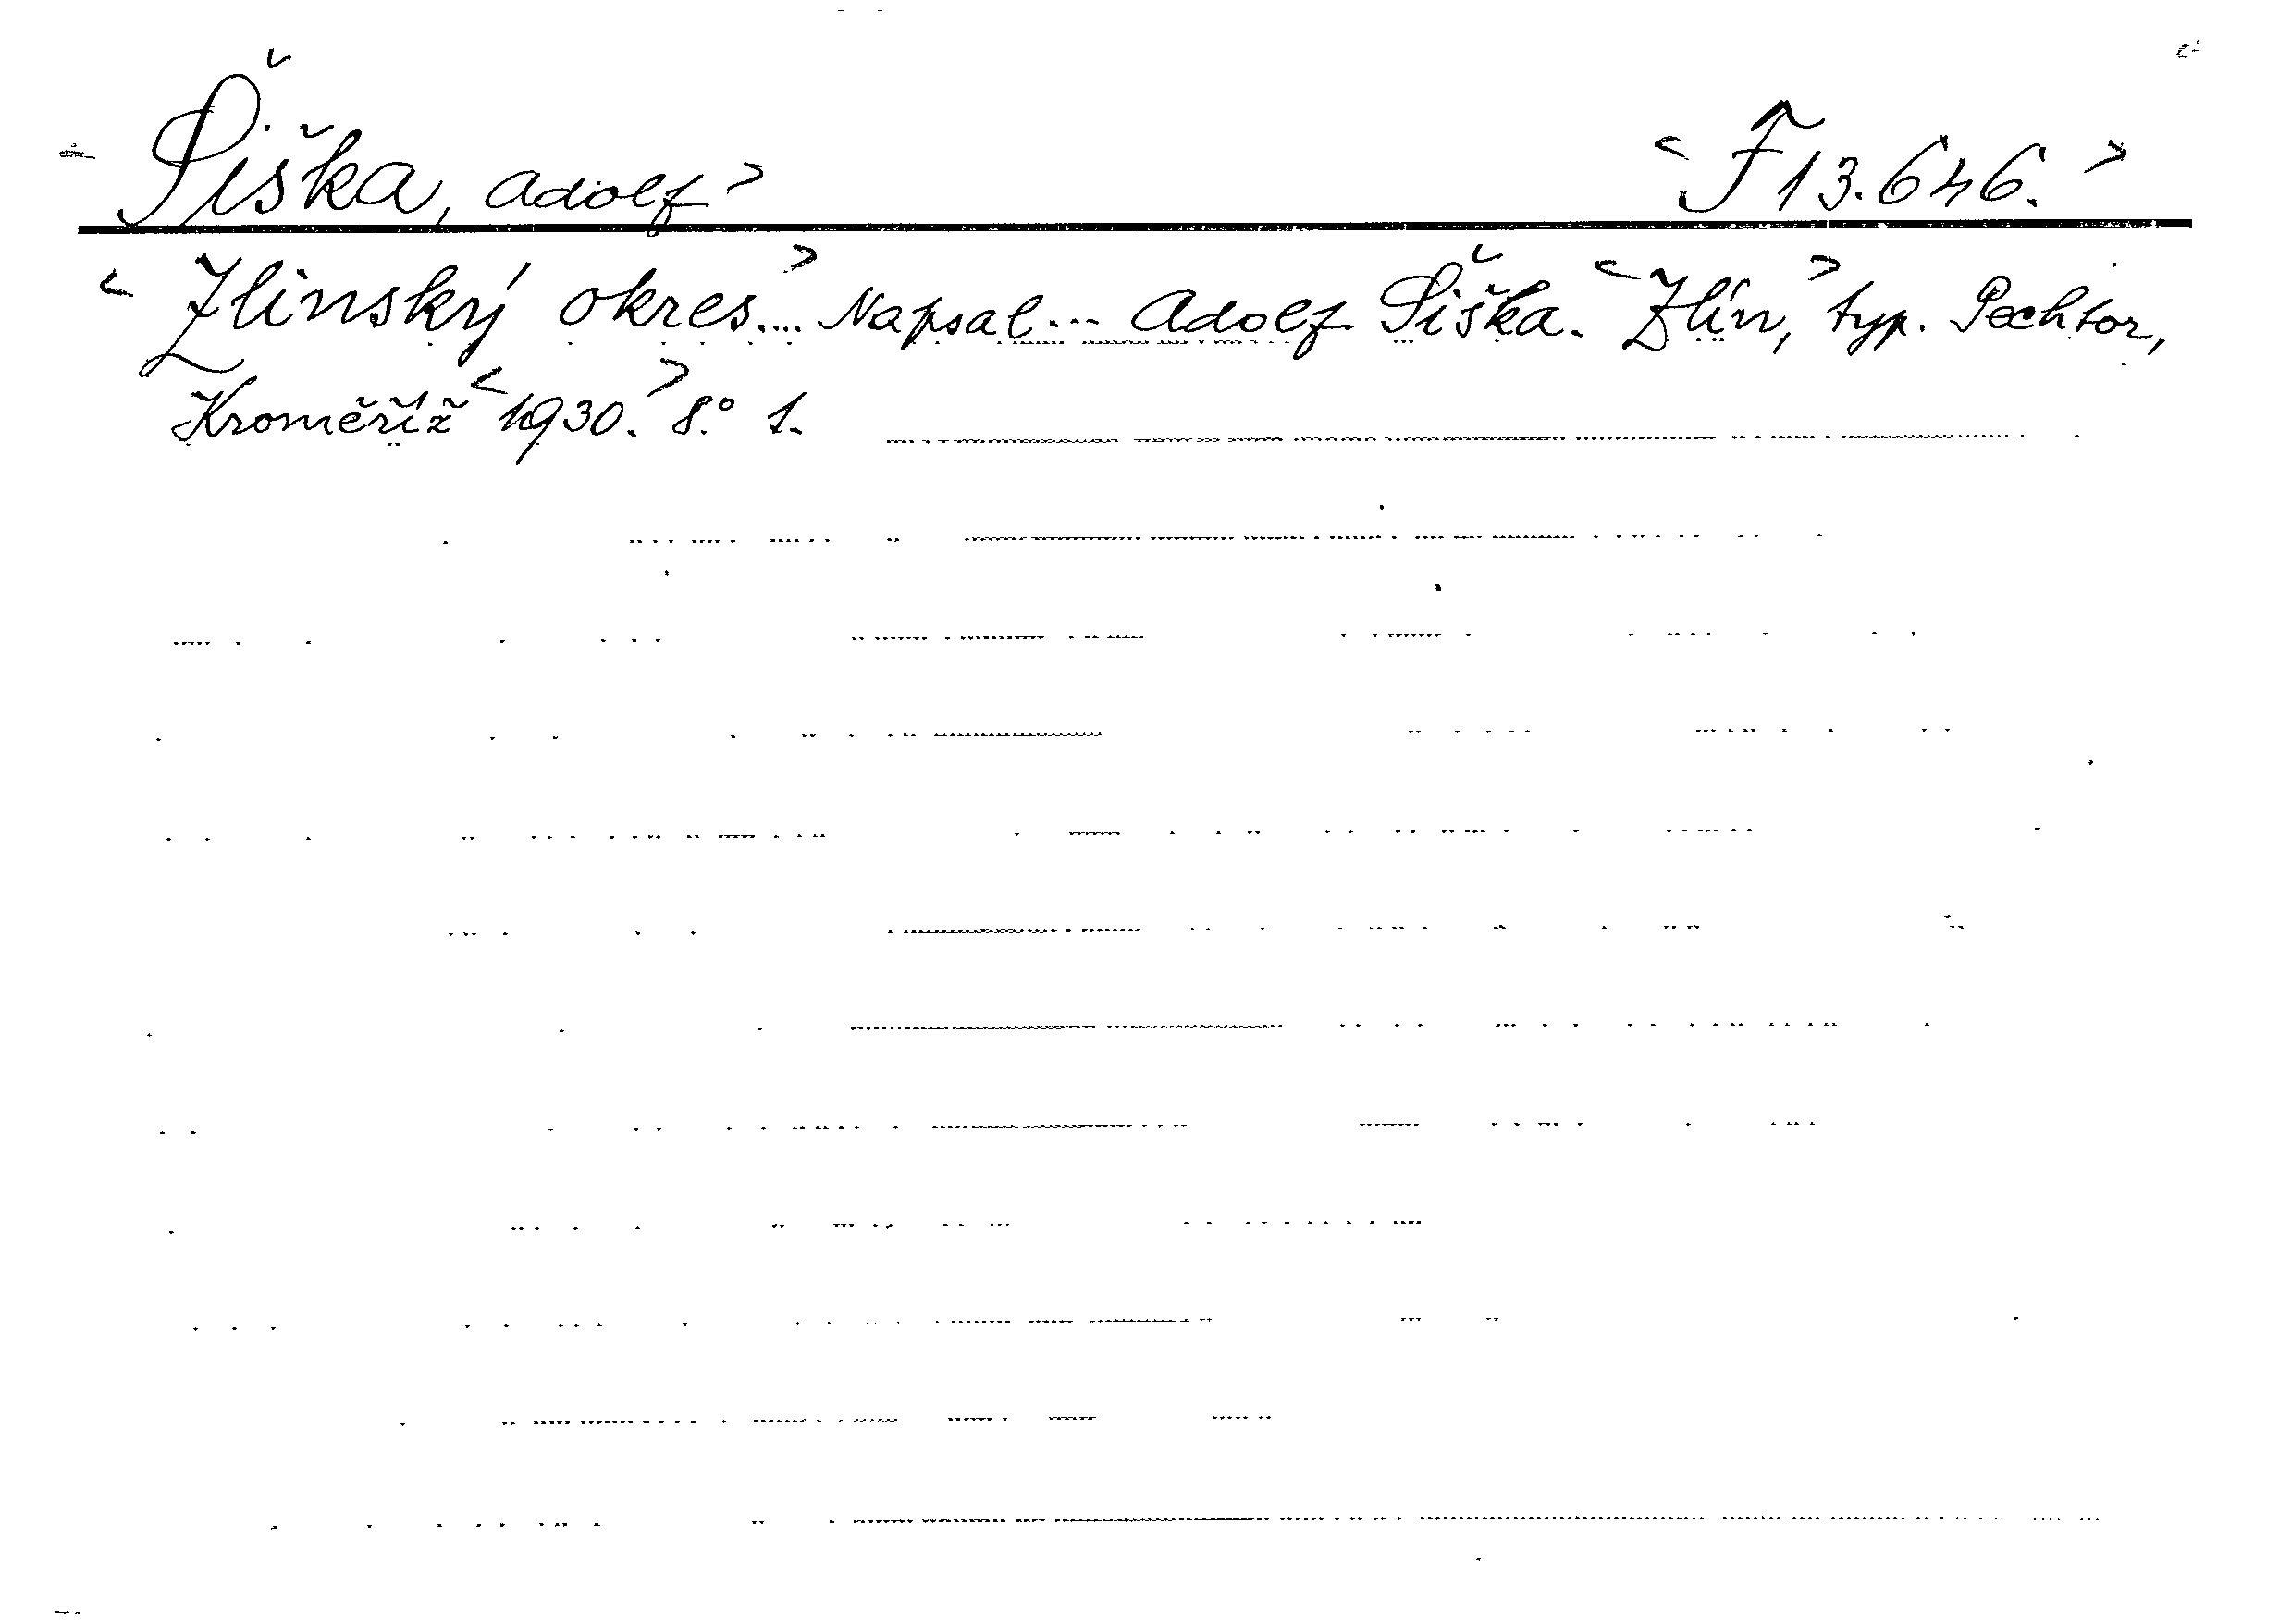 < Šiška, Adolf > < F 13.646. >
< Zlínský okres.... > Napsal... Adolf Šiška. < Zlín, > typ. Pechtor,
Kroměříž < 1930. > 8.° 1.